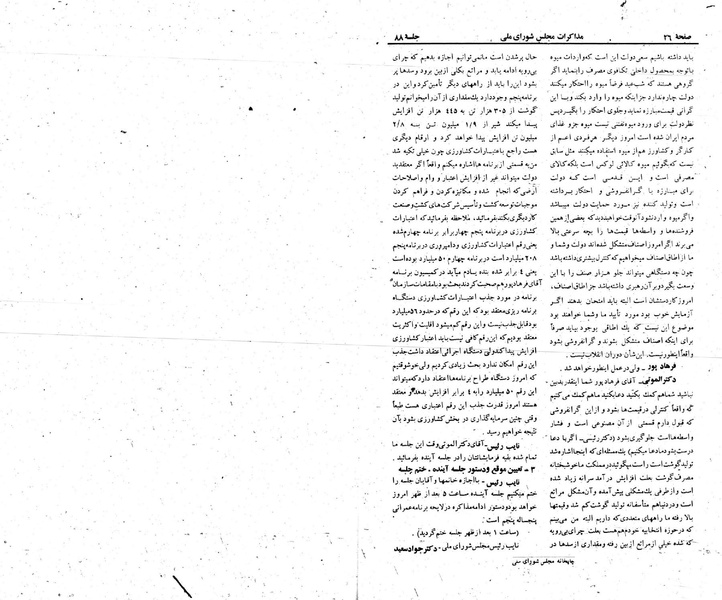 صفحه ۲۶
مذاکرات مجلس شورای ملی
جلسه ۸۸
باید داشته باشیم سعی دولت این است که واردات میوه
باتوجه بمحصول داخلی تکافوی مصرف را بنماید اگر
گروهی هستند که شب عید فرضاً میوه را احتکار میکنند
دولت چاره ندارد جز اینکه میوه را وارد بکند و با این
گرانی قیمت مبارزه نماید و جلوی احتکار را بگیرد پس
نظر دولت برای ورود میوه تفننی نیست میوه جزو غذای
مردم ایران شده است امروز دیگر هر فردی اعم از
کارگر و کشاورز هم از میوه استفاده میکنند مثل سابق
نیست که بگوئیم میوه کالائی لوکس است بلکه کالای
مصرفی است و این قدمی است که دولت
برای مبارزه با گرانفروشی و احتکار برداشته
است و تولید کننده نیز مورد حمایت دولت میباشد
و اگر میوه وارد نشود آنوقت خواهید دید که بعضی از همین
فروشنده‌ها و واسطه‌ها قیمت‌ها را بچه سرعتی بالا
می‌برند اگر امروز اصناف متشکل شده‌اند دولت و شما و
ما از اطاق اصناف میخواهیم که کنترل بیشتری داشته باشد
چون چه دستگاهی میتواند جلو هزار صنف را با این
وسعت بگیرد و بر آن رهبری داشته باشد جز اطاق اصناف،
امروز کار دستشان است البته باید امتحان بدهند اگر
آزمایش خوب بود مورد تأیید ما و شما خواهند بود
موضوع این نیست که یك اطاقی بوجود بیاید صرفاً
برای اینکه اصناف متشکل بشوند و گرانفروشی بشود
واقعاً اینطور نیست. این شأن دوران انقلاب نیست.
فرهاد پور - ولی در عمل اینطور خواهد شد.
دکتر الموتی- آقای فرهاد پور شما اینقدر بدبین
نباشید شما هم کمك بکنید دعا بکنید ما هم کمك می‌کنیم
که واقعاً کنترلی در قیمت‌ها بشود و از این گرانفروشی
که قبول دارم قسمتی از آن مصنوعی است و فشار
واسطه‌ها است جلوگیری بشود (دکتر رئیسی- اگر با دعا
درست بشود ما دعا میکنیم) یك مسئله‌ای که اینجا اشاره شد
تولید گوشت است راست میگوئید در مملکت ما خوشبختانه
مصرف گوشت بعلت افزایش درآمد سرانه زیاد شده
است و از طرفی یك مشکلی پیش آمده و آن مشکل مراتع
است و در دنیا هم متأسفانه تولید گوشت کم شد و قیمتها
بالا رفته ما راههای متعددی که داریم البته من می‌بینم
که در حوزه انتخابیه خودم هم هست بعلت چرای بی‌رویه
که شده خیلی از مراتع از بین رفته و مقداری از سدها در
حال پر شدن است ما نمی‌توانیم اجازه بدهیم که چرای
بی‌رویه ادامه یابد و مراتع بکلی از بین برود و سدها پر
بشود این را باید از راههای دیگر تأمین کرد و این در
برنامه پنجم وجود دارد یك مقداری از آن را میخوانم تولید
گوشت از ۳۰۵ هزار تن به ۴۴۵ هزار تن افزایش
پیدا میکند شیر از ۱/۹ میلیون تن به ۲/۸
میلیون تن افزایش پیدا خواهد کرد و ارقام دیگری
هست راجع باعتبارات کشاورزی چون خیلی تکیه شد
من به قسمتی از برنامه‌ها اشاره میکنم واقعاً اگر معتقدید
دولت میتواند غیر از افزایش اعتبار و وام و اصلاحات
ارضی که انجام شده و مکانیزه کردن و فراهم کردن
موجبات توسعه کشت و تأسیس شرکت‌های کشت و صنعت
کار دیگری بکند بفرمائید، ملاحظه بفرمائید که اعتبارات
کشاورزی در برنامه پنجم چهار برابر برنامه چهارم شده
یعنی رقم اعتبارات کشاورزی و دامپروری در برنامه پنجم
۲۰۸ میلیارد است در برنامه چهارم ۵۰ میلیارد بوده است
یعنی ۴ برابر شده بنده یادم میآید در کمیسیون برنامه
آقای فرهاد پور هم صحبت کردند بحث بود با مقامات سازمان
برنامه در مورد جذب اعتبارات کشاورزی دستگاه
برنامه ریزی معتقد بود که این رقم که در حدود ۵۶ میلیارد
بود قابل جذب نیست و این رقم کم میشود اقلیت و اکثریت
معتقد بودیم که این رقم کافی نیست باید اعتبار کشاورزی
افزایش پیدا کند ولی دستگاه اجرائی اعتقاد داشت جذب
این رقم امکان ندارد بحث زیادی کردیم ولی خوشوقتیم
که امروز دستگاه طراح برنامه ما اعتقاد دارد که میتواند
این رقم ۵۰ میلیارد را به ۴ برابر افزایش بدهد و معتقد
هستند امروز قدرت جذب این رقم اعتباری هست طبعاً
وقتی چنین سرمایه‌گذاری در بخش کشاورزی بشود بآن
نتیجه خواهیم رسید.
نایب رئیس- آقای دکتر الموتی وقت این جلسه ما
تمام شده بقیه فرمایشاتتان را در جلسه آینده بفرمائید.
۳ - تعیین موقع و دستور جلسه آینده . ختم جلسه
نایب رئیس - با اجازه خانمها و آقایان جلسه را
ختم میکنیم جلسه آینده ساعت ۵ بعد از ظهر امروز
خواهد بود و دستور ادامه مذاکره در لایحه برنامه عمرانی
پنجساله پنجم است :
(ساعت ۱ بعد از ظهر جلسه ختم گردید)
نایب رئیس مجلس شورای ملی - دکتر جواد سعید
چاپخانه مجلس شورای ملی